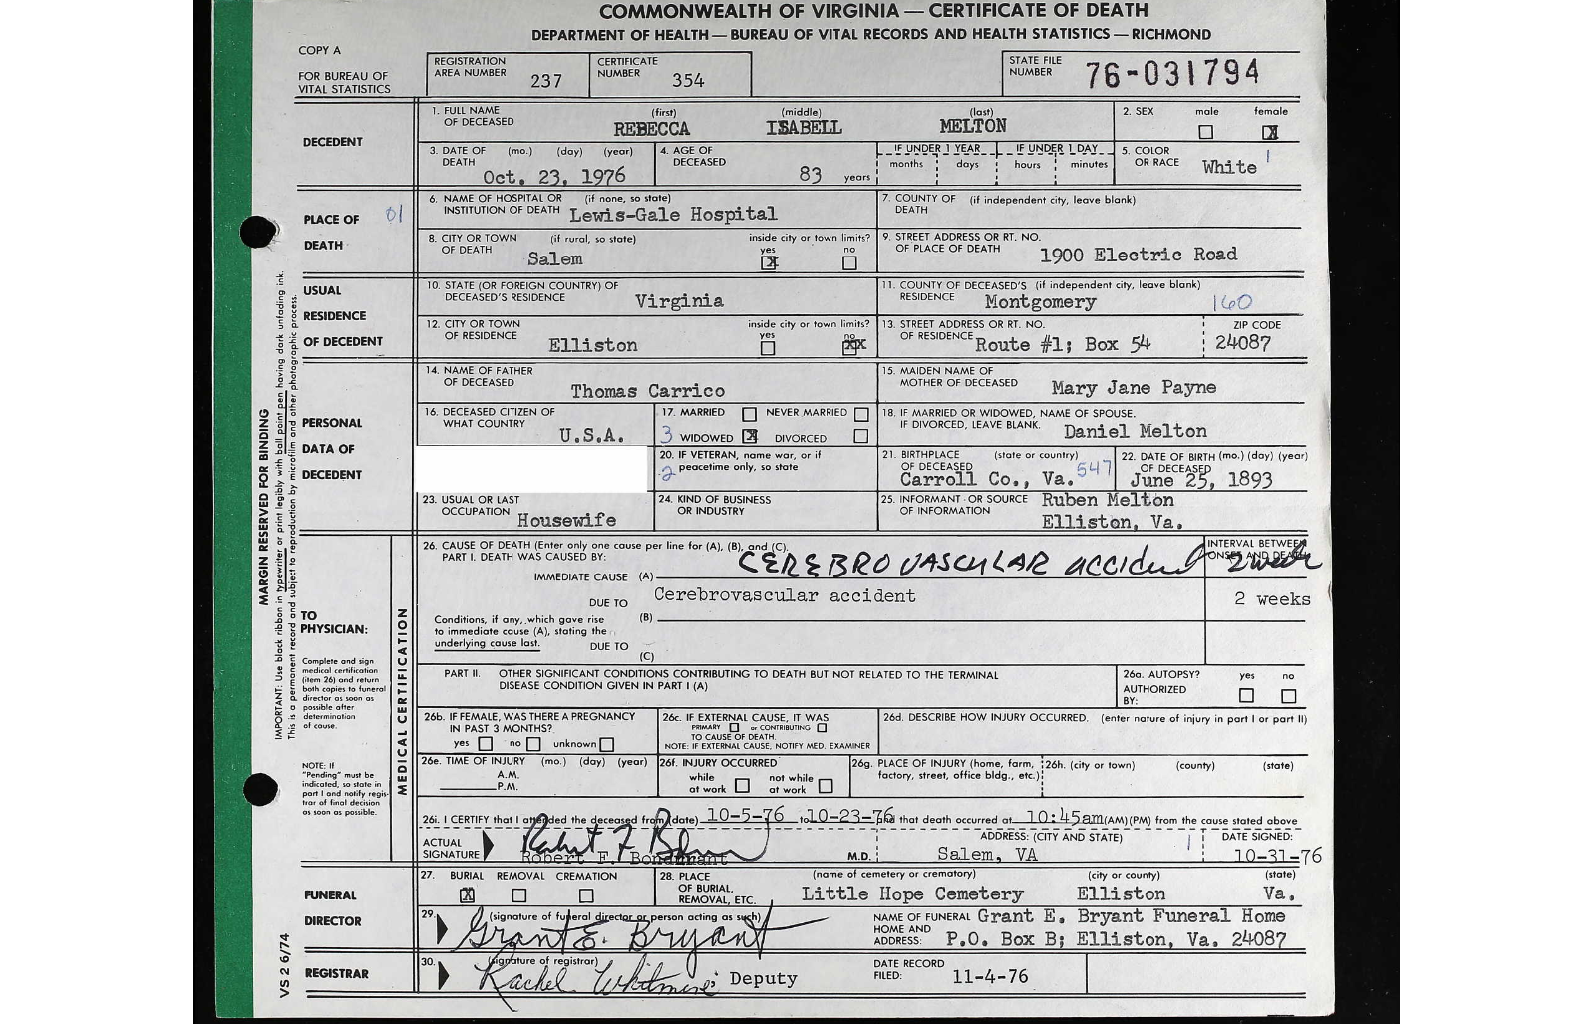 COMMONWEALTH OF VIRGINIA — CERTIFICATE OF DEATH
DEPARTMENT OF HEALTH — BUREAU OF VITAL RECORDS AND HEALTH STATISTICS — RICHMOND
COPY A
FOR BUREAU OF
VITAL STATISTICS
REGISTRATION
AREA NUMBER 237
CERTIFICATE
NUMBER 354
STATE FILE
NUMBER 76-031794
DECEDENT
1. FULL NAME (first) (middle) (last)
OF DECEASED REBECCA ISABELL MELTON
2. SEX male female
X
3. DATE OF (mo.) (day) (year)
DEATH Oct. 23, 1976
4. AGE OF
DECEASED 83 years
IF UNDER 1 YEAR
months days
IF UNDER 1 DAY
hours minutes
5. COLOR
OR RACE White 1
PLACE OF 01
DEATH
6. NAME OF HOSPITAL OR (if none, so state)
INSTITUTION OF DEATH Lewis-Gale Hospital
7. COUNTY OF (if independent city, leave blank)
DEATH
8. CITY OR TOWN (if rural, so state) inside city or town limits?
OF DEATH Salem yes X no
9. STREET ADDRESS OR RT. NO.
OF PLACE OF DEATH 1900 Electric Road
USUAL
RESIDENCE
OF DECEDENT
10. STATE (OR FOREIGN COUNTRY) OF
DECEASED'S RESIDENCE Virginia
11. COUNTY OF DECEASED'S (if independent city, leave blank)
RESIDENCE Montgomery 160
12. CITY OR TOWN inside city or town limits?
OF RESIDENCE Elliston yes no XX
13. STREET ADDRESS OR RT. NO. ZIP CODE
OF RESIDENCE Route #1; Box 54 24087
PERSONAL
DATA OF
DECEDENT
14. NAME OF FATHER
OF DECEASED Thomas Carrico
15. MAIDEN NAME OF
MOTHER OF DECEASED Mary Jane Payne
16. DECEASED CITIZEN OF
WHAT COUNTRY U.S.A.
17. MARRIED NEVER MARRIED
3 WIDOWED X DIVORCED
18. IF MARRIED OR WIDOWED, NAME OF SPOUSE.
IF DIVORCED, LEAVE BLANK. Daniel Melton
20. IF VETERAN, name war, or if
2 peacetime only, so state
21. BIRTHPLACE (state or country)
OF DECEASED 547
Carroll Co., Va.
22. DATE OF BIRTH (mo.) (day) (year)
OF DECEASED
June 25, 1893
23. USUAL OR LAST
OCCUPATION Housewife
24. KIND OF BUSINESS
OR INDUSTRY
25. INFORMANT OR SOURCE Ruben Melton
OF INFORMATION Elliston, Va.
MARGIN RESERVED FOR BINDING
IMPORTANT: Use black ribbon in typewriter or print legibly with ball point pen having dark unfading ink.
This is a permanent record and subject to reproduction by microfilm and other photographic process.
TO
PHYSICIAN:
Complete and sign
medical certification
(item 26) and return
both copies to funeral
director as soon as
possible after
determination
of cause.
NOTE: If
"Pending" must be
indicated, so state in
part I and notify regis-
trar of final decision
as soon as possible.
MEDICAL CERTIFICATION
26. CAUSE OF DEATH (Enter only one cause per line for (A), (B), and (C).
PART I. DEATH WAS CAUSED BY:
INTERVAL BETWEEN
ONSET AND DEATH
IMMEDIATE CAUSE (A) CEREBROVASCULAR accident 2 week
DUE TO Cerebrovascular accident 2 weeks
Conditions, if any, which gave rise (B)
to immediate cause (A), stating the
underlying cause last. DUE TO
(C)
PART II. OTHER SIGNIFICANT CONDITIONS CONTRIBUTING TO DEATH BUT NOT RELATED TO THE TERMINAL
DISEASE CONDITION GIVEN IN PART I (A)
26a. AUTOPSY? yes no
AUTHORIZED
BY:
26b. IF FEMALE, WAS THERE A PREGNANCY
IN PAST 3 MONTHS?
yes no unknown
26c. IF EXTERNAL CAUSE, IT WAS
PRIMARY or CONTRIBUTING
TO CAUSE OF DEATH.
NOTE: IF EXTERNAL CAUSE, NOTIFY MED. EXAMINER
26d. DESCRIBE HOW INJURY OCCURRED. (enter nature of injury in part I or part II)
26e. TIME OF INJURY (mo.) (day) (year)
A.M.
P.M.
26f. INJURY OCCURRED
while not while
at work at work
26g. PLACE OF INJURY (home, farm,
factory, street, office bldg., etc.)
26h. (city or town) (county) (state)
26i. I CERTIFY that I attended the deceased from (date) 10-5-76 to 10-23-76 and that death occurred at 10:45am (AM)(PM) from the cause stated above
ACTUAL
SIGNATURE Robert F. Bondurant M.D.
ADDRESS: (CITY AND STATE) 1
Salem, VA
DATE SIGNED:
10-31-76
FUNERAL
DIRECTOR
27. BURIAL REMOVAL CREMATION
X
28. PLACE (name of cemetery or crematory) (city or county) (state)
OF BURIAL,
REMOVAL, ETC. Little Hope Cemetery Elliston Va.
29. (signature of funeral director or person acting as such)
Grant E. Bryant
NAME OF FUNERAL Grant E. Bryant Funeral Home
HOME AND
ADDRESS: P.O. Box B; Elliston, Va. 24087
REGISTRAR
30. (signature of registrar)
Rachel Whitmire; Deputy
DATE RECORD
FILED: 11-4-76
VS 2 6/74